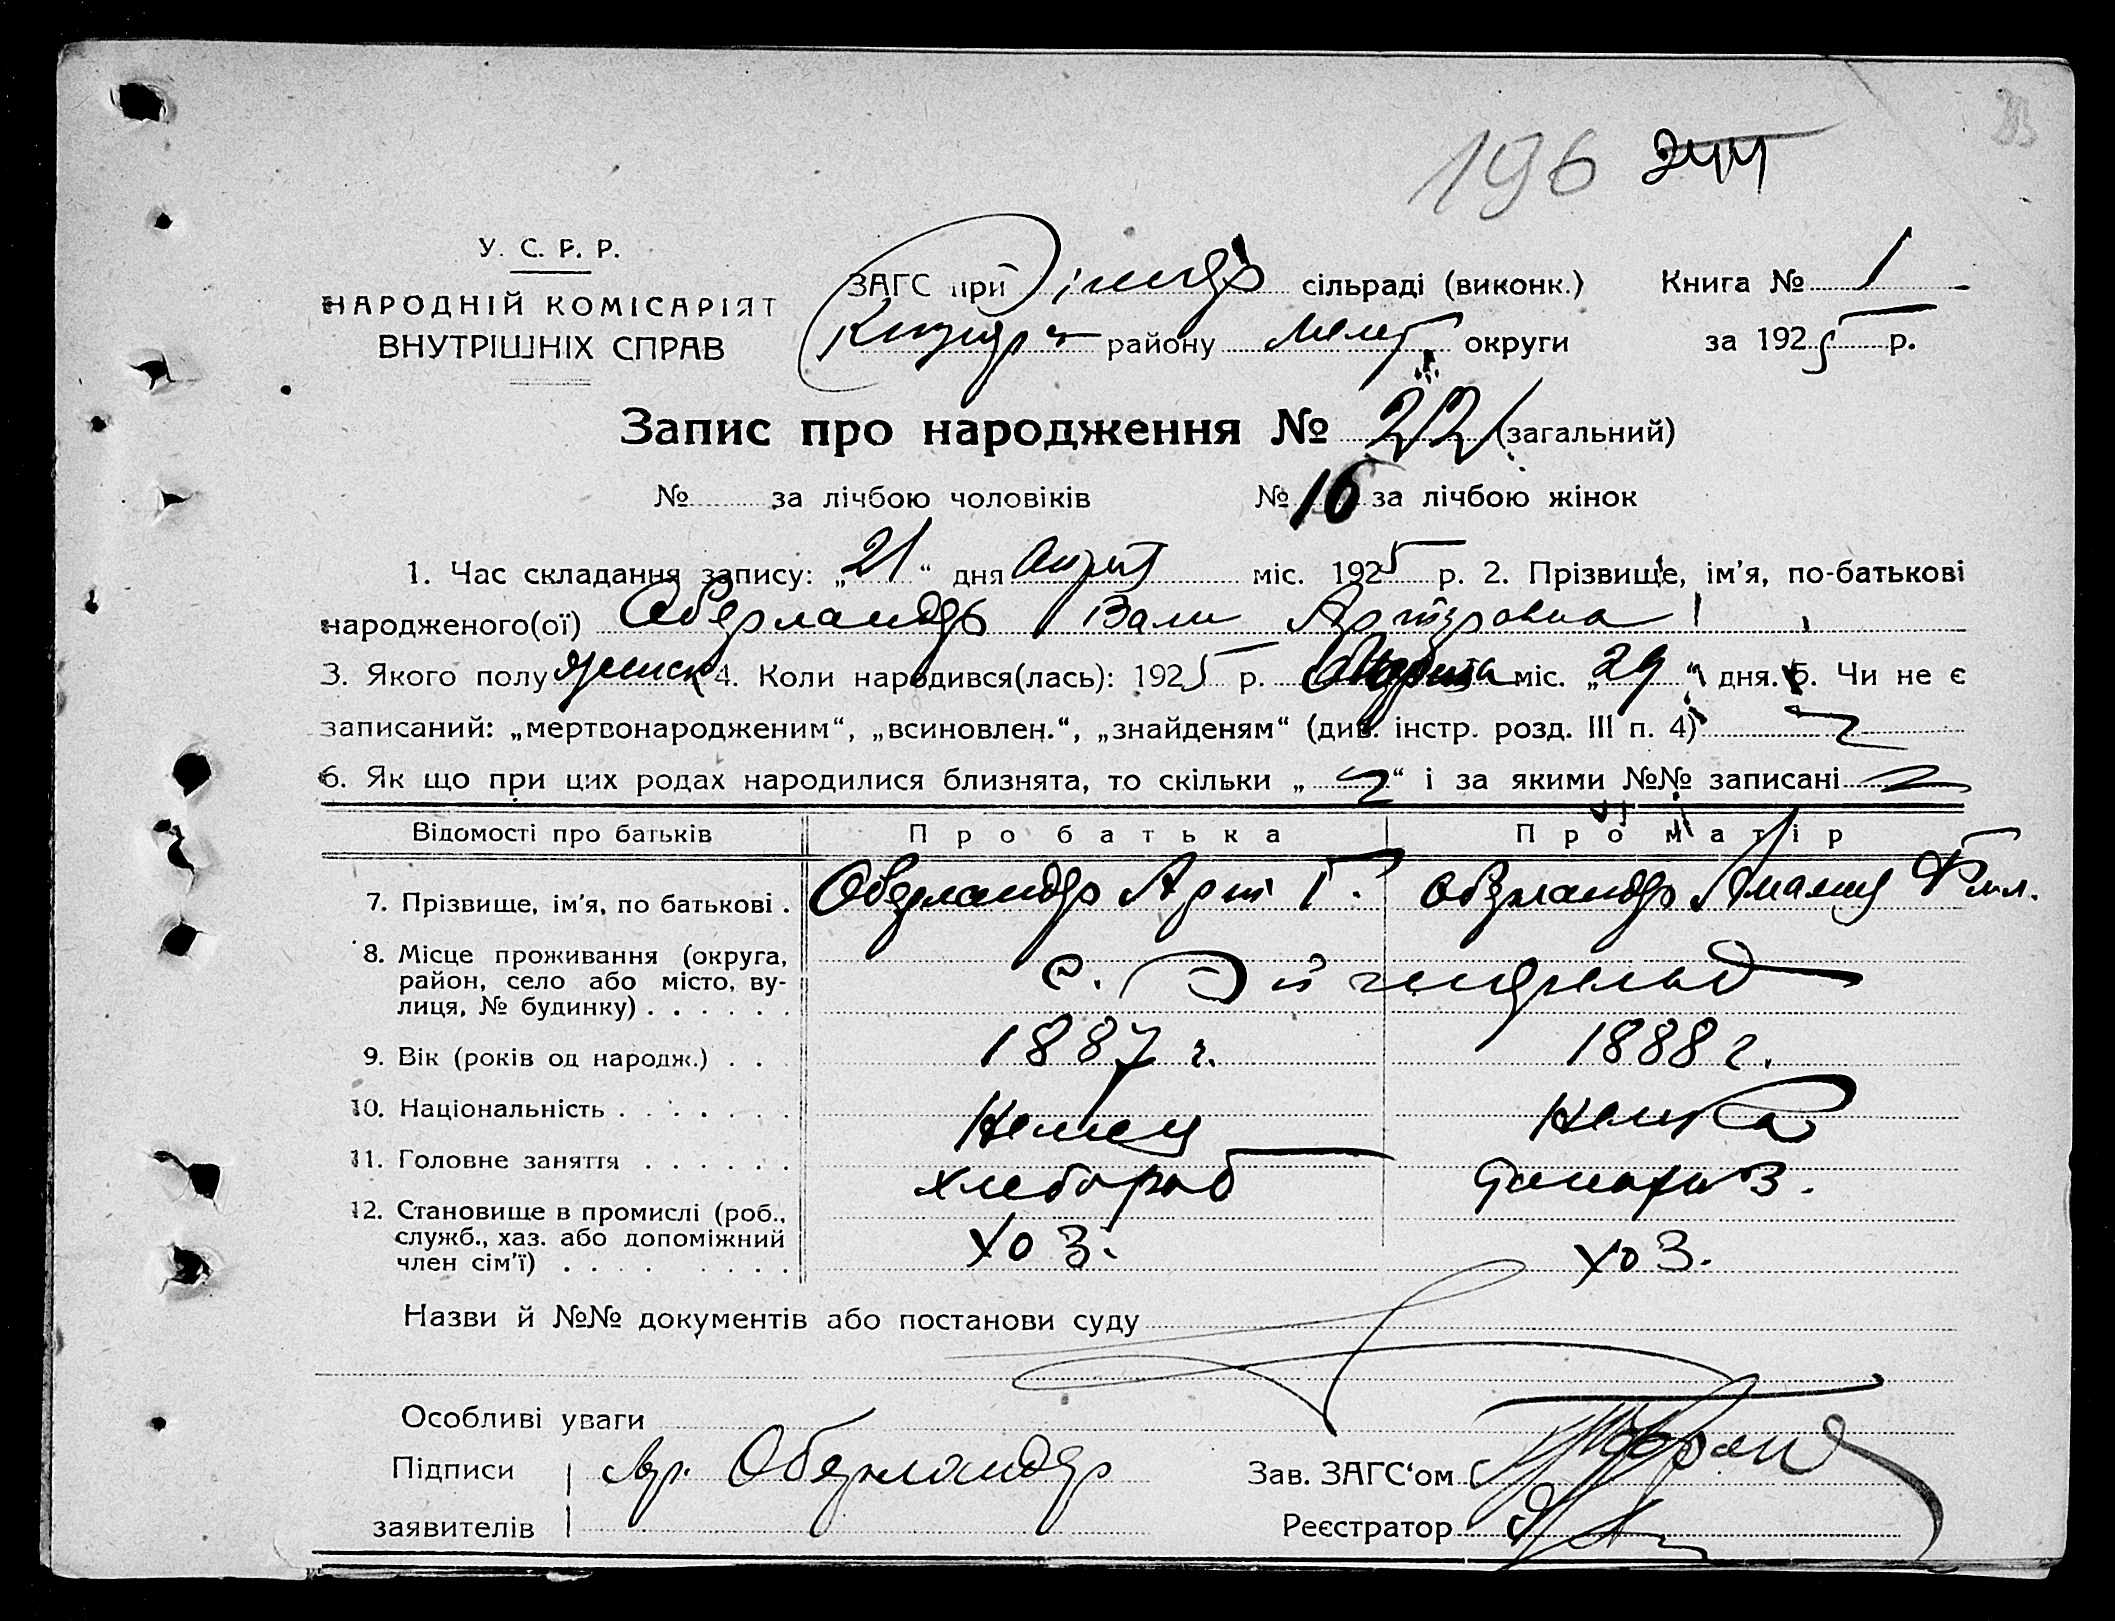 196 244
У. С. Р. Р.
НАРОДНІЙ КОМІСАРІЯТ
ВНУТРІШНІХ СПРАВ
ЗАГС при сільраді (виконк.) Книга № 1
району Мелет округи за 1925 р.
Запис про народження № 22 (загальний)
№ за лічбою чоловіків № 16 за лічбою жінок
1. Час складання запису: „21“ дня міс. 1925 р. 2. Прізвище, ім'я, по-батькові
народженого(ої) Оберландер Вали Артуровна
3. Якого полу женск 4. Коли народився(лась): 1925 р. міс. „29“ дня. 5. Чи не є
записаний: „мертвонародженим“, „всиновлен.“, „знайденям“ (див. інстр. розд. III п. 4)
6. Як що при цих родах народилися близнята, то скільки „ “ і за якими №№ записані
Відомості про батьків Про батька Про матір
7. Прізвище, ім'я, по батькові . Оберландер Арт Г. Оберландер Амалия Фил.
8. Місце проживання (округа,
район, село або місто, ву-
лиця, № будинку) . . . . . . с. Эйгенфельд
9. Вік (років од народж.) . . 1887 г. 1888 г.
10. Національність . . . . . . . Немец Немка
11. Головне заняття . . . . . . хлебороб домохоз.
12. Становище в промислі (роб.,
служб., хаз. або допоміжний
член сім'ї) . . . . . . . . хоз. хоз.
Назви й №№ документів або постанови суду
Особливі уваги
Підписи Ар. Оберландер Зав. ЗАГС‘ом
заявителів Реєстратор